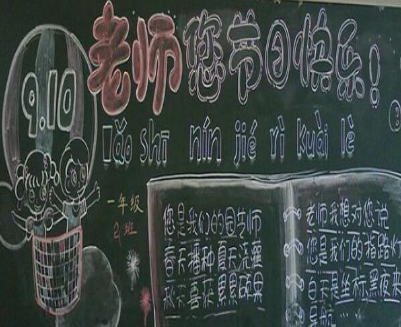 9.10
老师您节日快乐!
lǎo shī nín jié rì kuài lè
一年级
2班
您是我们的园艺师
春天播种夏天浇灌
老师我想对您说
您是我们的指路灯
白天是坐标黑夜来